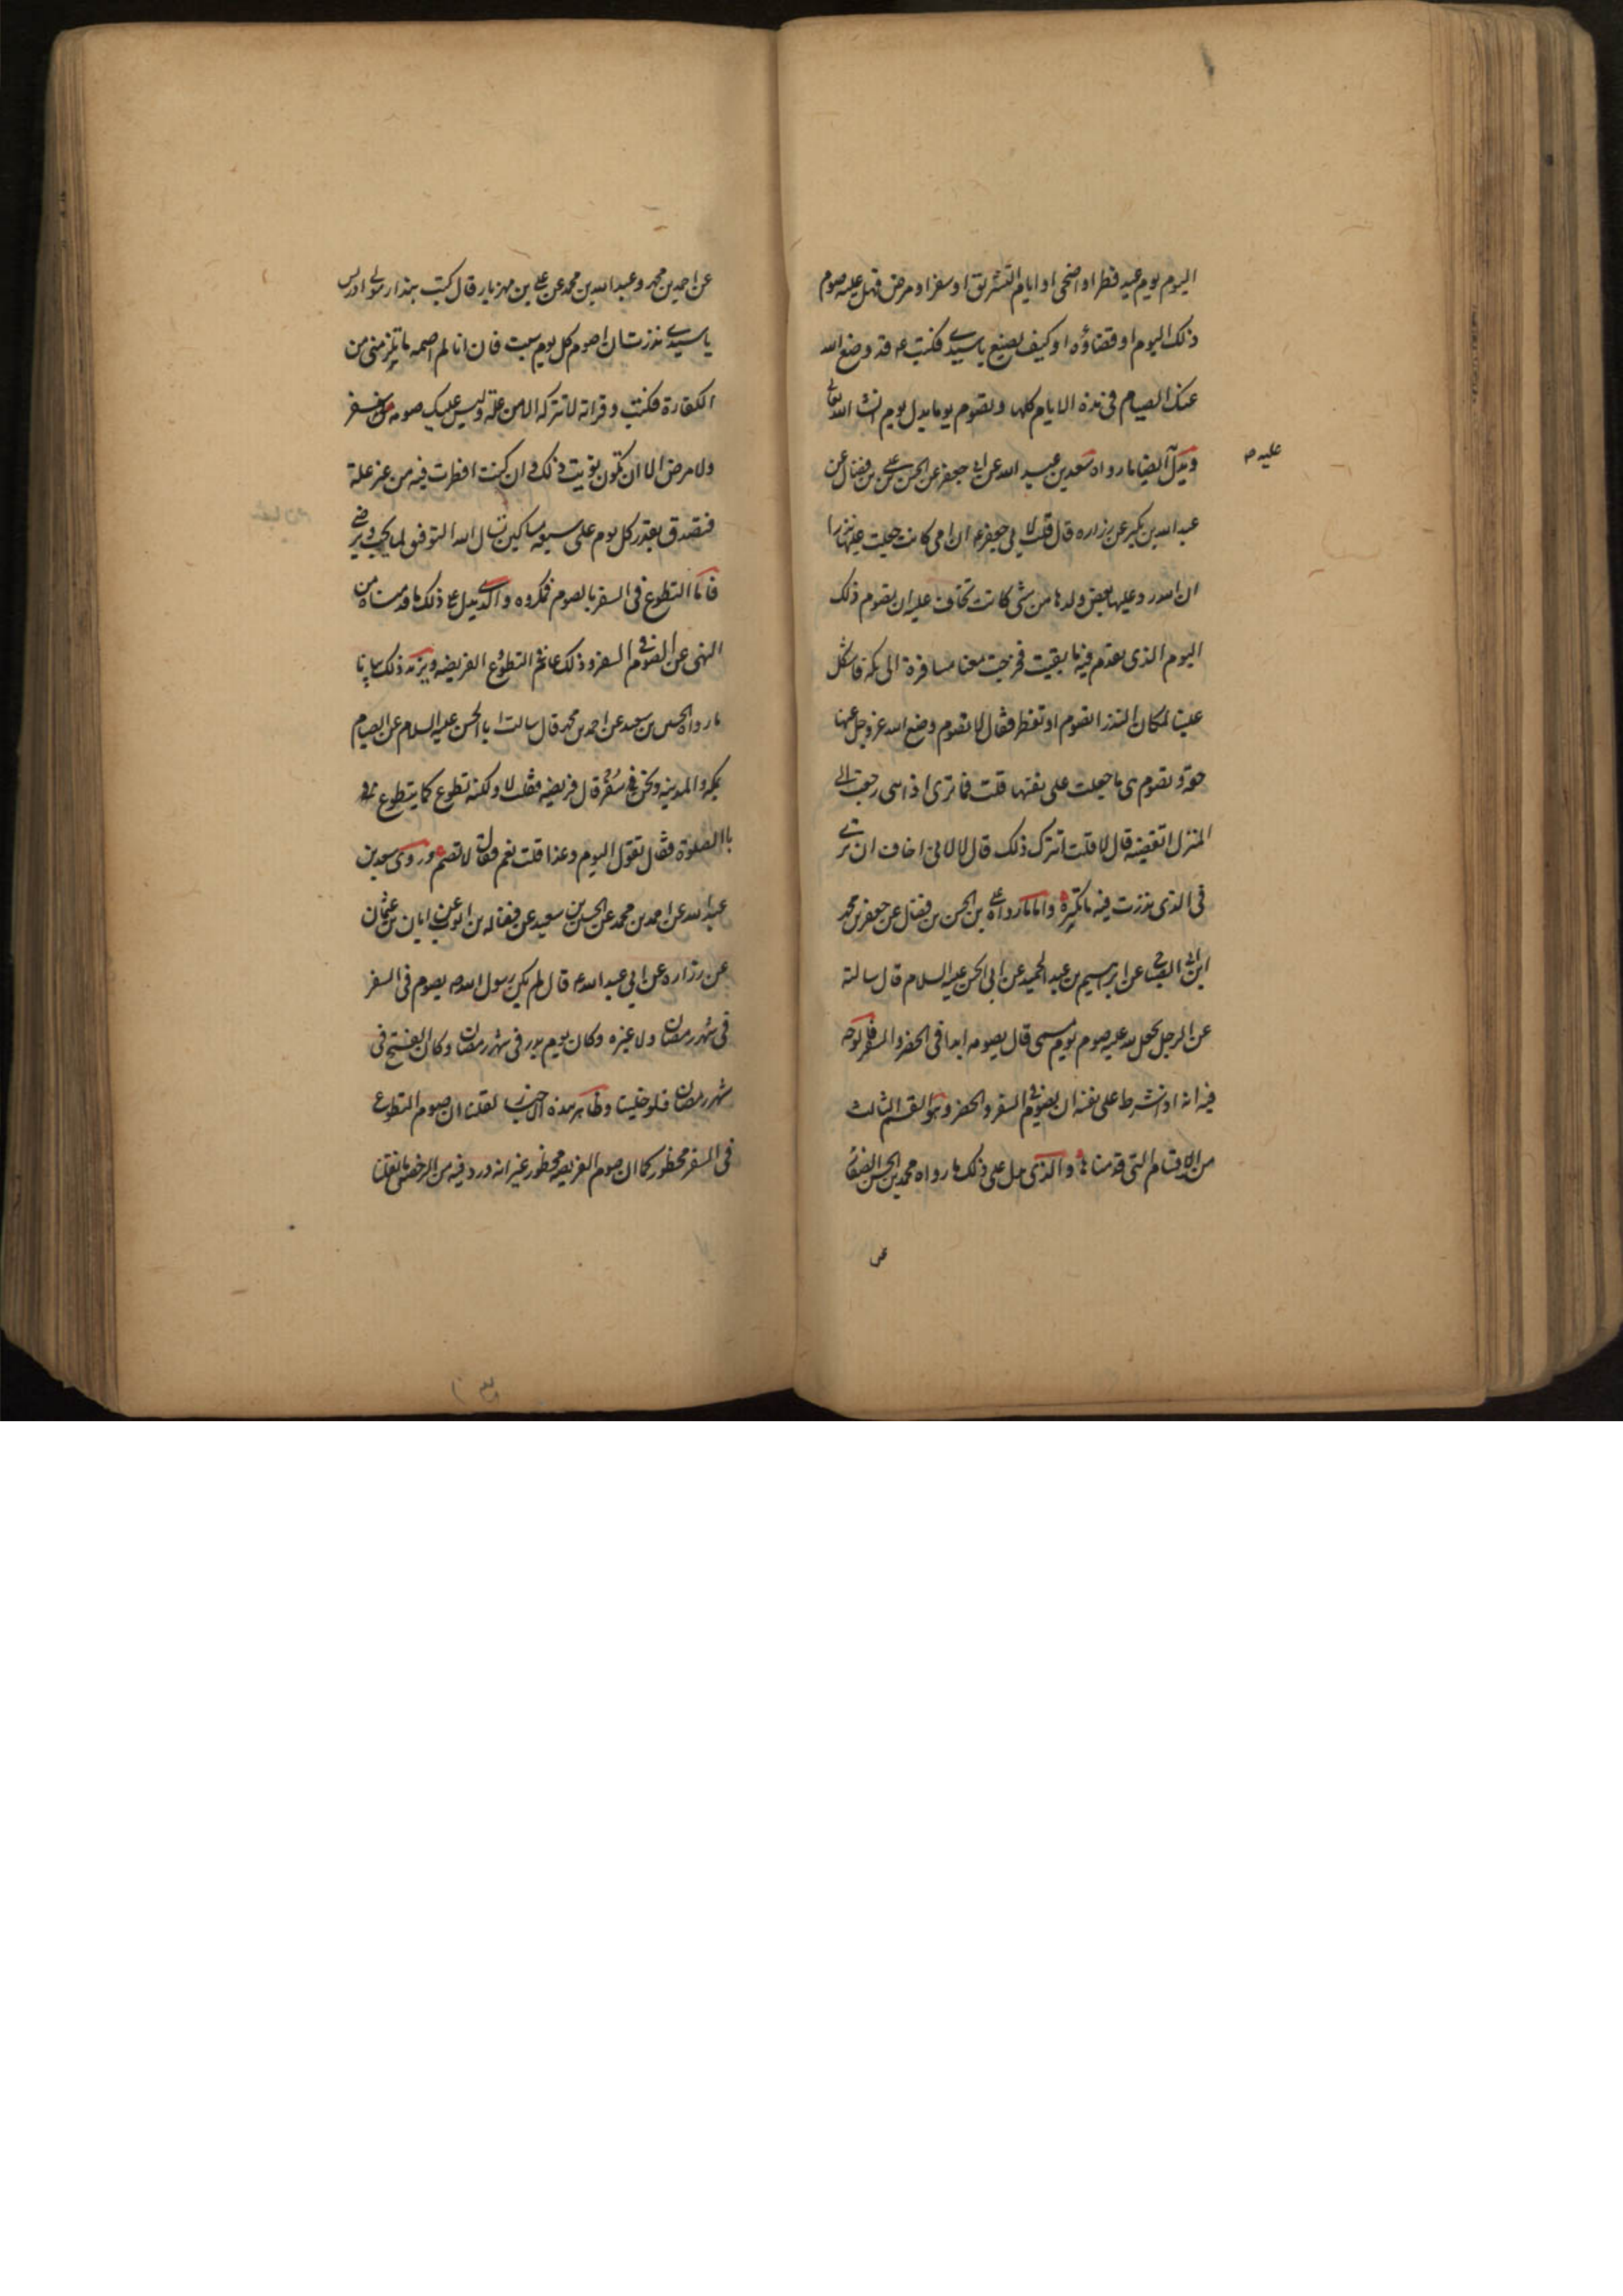 اليوم يوم عيد فطر او اضحى او ايام التشريق او سفر او مرض فهل عليه صوم
ذلك اليوم او قضاؤه او كيف يصنع يا سيدي فكتب ع قد وضع الله
عنك الصيام في هذه الايام كلها وتصوم يوما بدل يوم انشاء الله تعالى
ويدل ايضا ما رواه سعد بن عبد الله عن ابي جعفر عن الحسن بن علي بن فضال عن
عليه م
عبد الله بن بكير عن زراره قال قلت لابي جعفر ع ان امي كانت جعلت عليها نذرا
ان الله رد عليها بعض ولدها من شي كانت تخاف عليه ان تصوم ذلك
اليوم الذي يقدم فيه ما بقيت فخرجت معنا مسافرة الى مكة فاشكل
علينا لمكان النذر اتصوم او تفطر فقال لا تصوم وضع الله عز وجل عنها
حقه وتصوم هي ما جعلت على نفسها قلت فما ترى اذا هي رجعت الى
المنزل اتقضيه قال لا قلت افتترك ذلك قال لا لاني اخاف ان ترى
في الذي نذرت فيه ما تكره واما ما رواه علي بن الحسن بن فضال عن جعفر بن محمد
ابن ابي الصباح عن ابراهيم بن عبد الحميد عن ابي الحسن عليه السلام قال سالته
عن الرجل يجعل لله عليه صوم يوم مسمى قال يصومه ابدا في الحضر والسفر فالوجه
فيه انه اذا شرط على نفسه ان يصوم في السفر والحضر وهو القسم الثالث
من الاقسام التي قدمناها والذي يدل على ذلك ما رواه محمد بن الحسن الصفار
عن
عن احمد بن محمد وعبد الله بن محمد عن علي بن مهزيار قال كتب بندار مولى ادريس
يا سيدي نذرت ان اصوم كل يوم سبت فان انا لم اصمه ما يلزمني من
الكفارة فكتب وقراته لا تتركه الا من علة وليس عليك صومه في سفر
ولا مرض الا ان تكون نويت ذلك وان كنت افطرت فيه من غير علة
فتصدق بقدر كل يوم على سبعة مساكين نسال الله التوفيق لما يحب ويرضى
فاما التطوع في السفر بالصوم فمكروه والذي يدل على ذلك ما قدمناه من
النهي عن الصوم في السفر وذلك عام في التطوع الفريضه ويزيد ذلك بيانا
ما رواه الحسين بن سعيد عن احمد بن محمد قال سالت ابا الحسن عليه السلام عن الصيام
بمكه والمدينه ونحن في سفر قال فريضه فقلت لا ولكنه تطوع كما يتطوع
باالصلوة فقال تقول اليوم وغدا قلت نعم فقال لا تصم وروى سعد بن
عبد الله عن احمد بن محمد عن الحسين بن سعيد عن فضاله بن ايوب عن ابان بن عثمان
عن زراره عن ابي عبد الله ع قال لم يكن رسول الله ص يصوم في السفر
في شهر رمضان ولا غيره وكان يوم بدر في شهر رمضان وكان الفتح في
شهر رمضان فلو خلينا وظاهر هذه الاخبار لقلنا ان صوم التطوع
في السفر محظور كما ان صوم الفريضه محظور غير انه ورد فيه من الرخص ما نقلنا